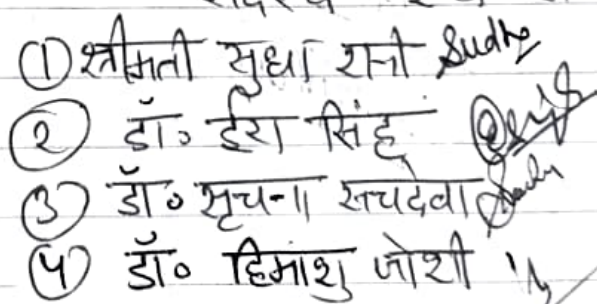 ① श्रीमती सुधा रानी Sudha
② डॉ० ईरा सिंह
③ डॉ० सृचना सचदेवा
④ डॉ० हिमांशु जोशी